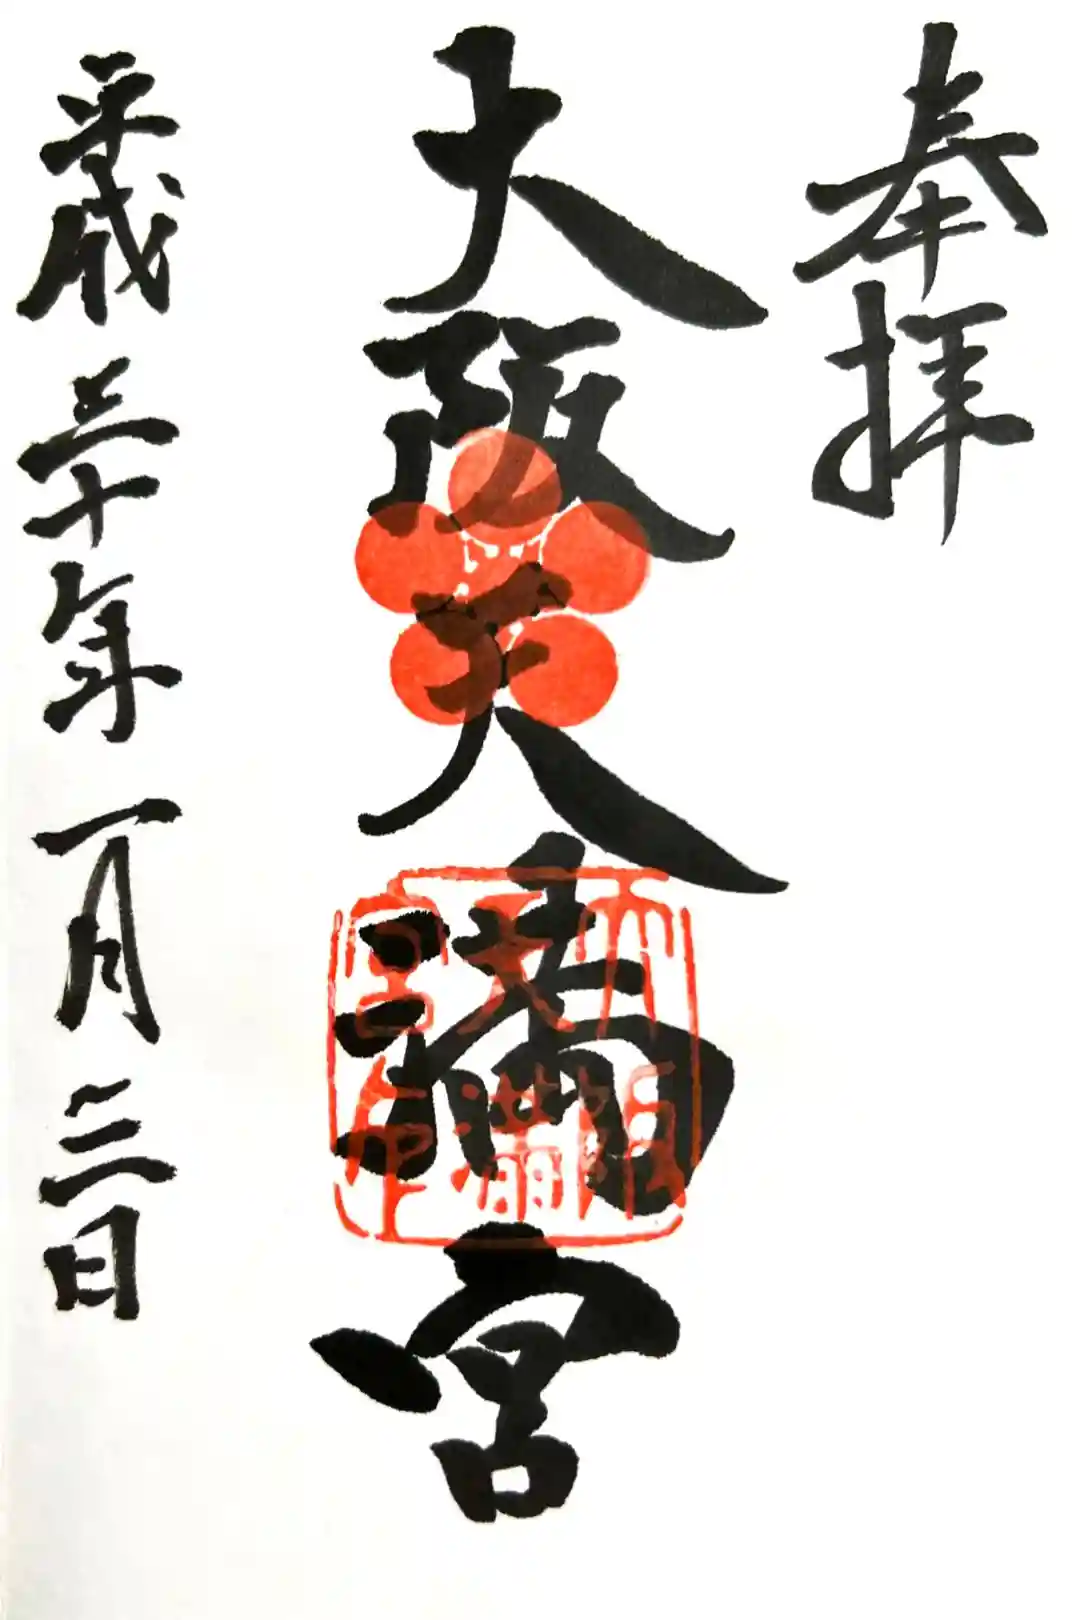 奉拝
大阪天満宮
大阪
天満
宮印
平成三十年一月三日